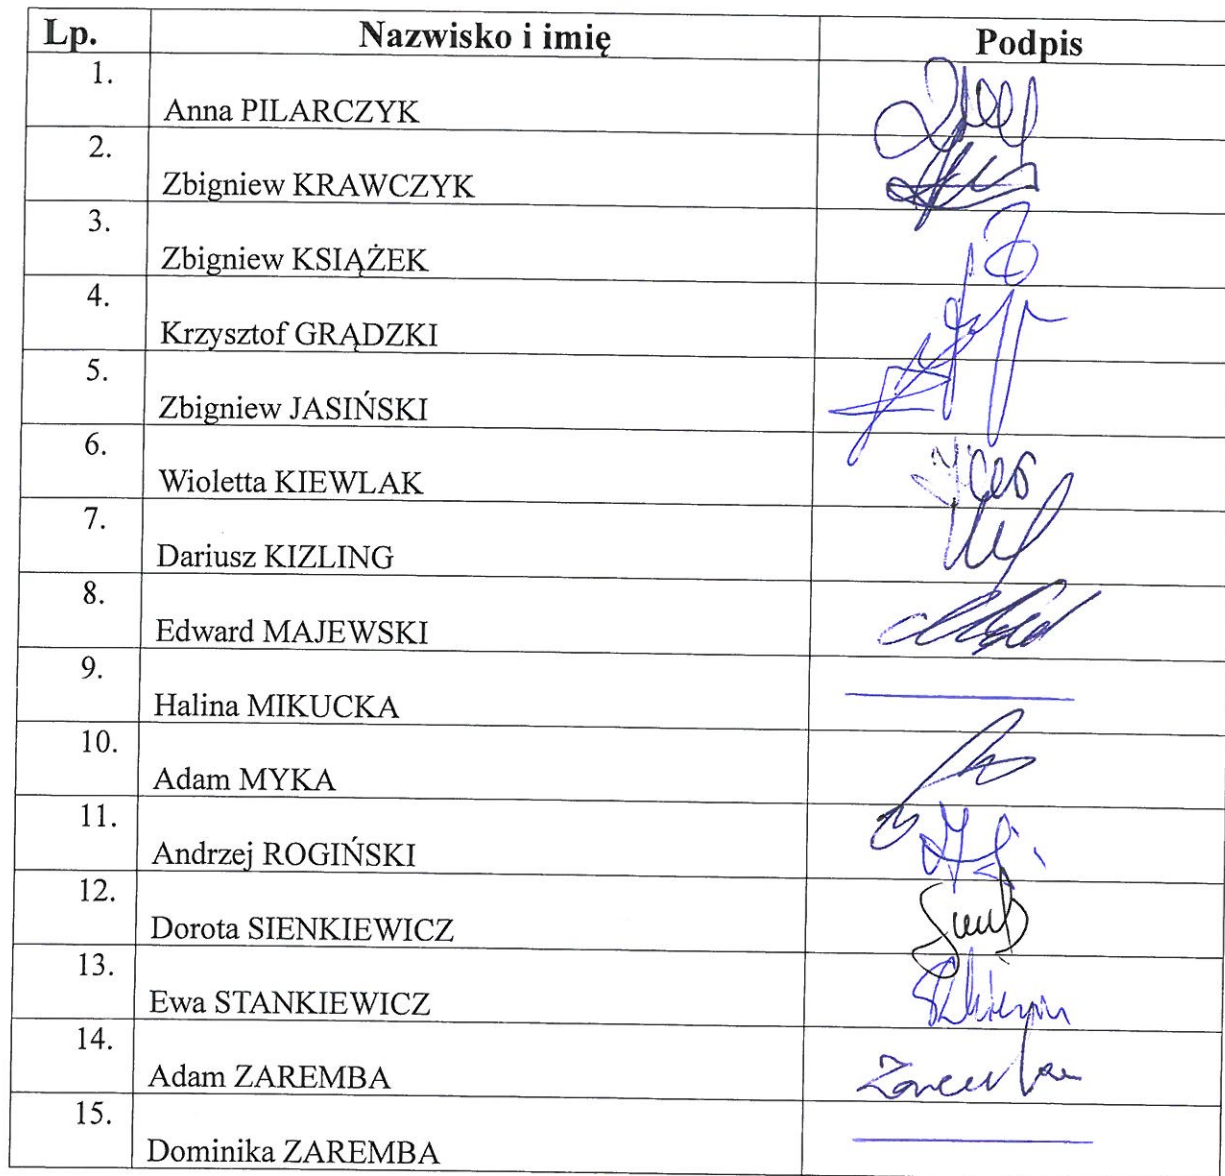 Lp. Nazwisko i imię Podpis
1. Anna PILARCZYK
2. Zbigniew KRAWCZYK
3. Zbigniew KSIĄŻEK
4. Krzysztof GRĄDZKI
5. Zbigniew JASIŃSKI
6. Wioletta KIEWLAK
7. Dariusz KIZLING
8. Edward MAJEWSKI
9. Halina MIKUCKA
10. Adam MYKA
11. Andrzej ROGIŃSKI
12. Dorota SIENKIEWICZ
13. Ewa STANKIEWICZ
14. Adam ZAREMBA
15. Dominika ZAREMBA